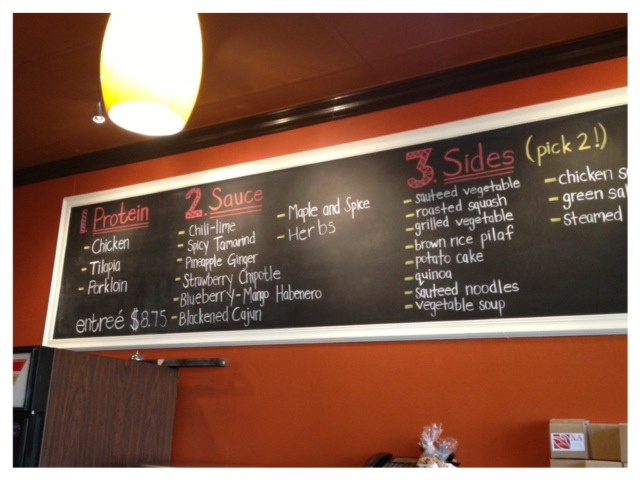 1. Protein
- Chicken
- Tilapia
- Porkloin
entreé $8.75
2. Sauce
- Chili-lime
- Spicy Tamarind
- Pineapple Ginger
- Strawberry Chipotle
- Blueberry-Mango Habenero
- Blackened Cajun
- Maple and Spice
- Herbs
3. Sides (pick 2!)
- sauteed vegetable
- roasted squash
- grilled vegetable
- brown rice pilaf
- potato cake
- quinoa
- sauteed noodles
- vegetable soup
- chicken
- green
- steamed
XA